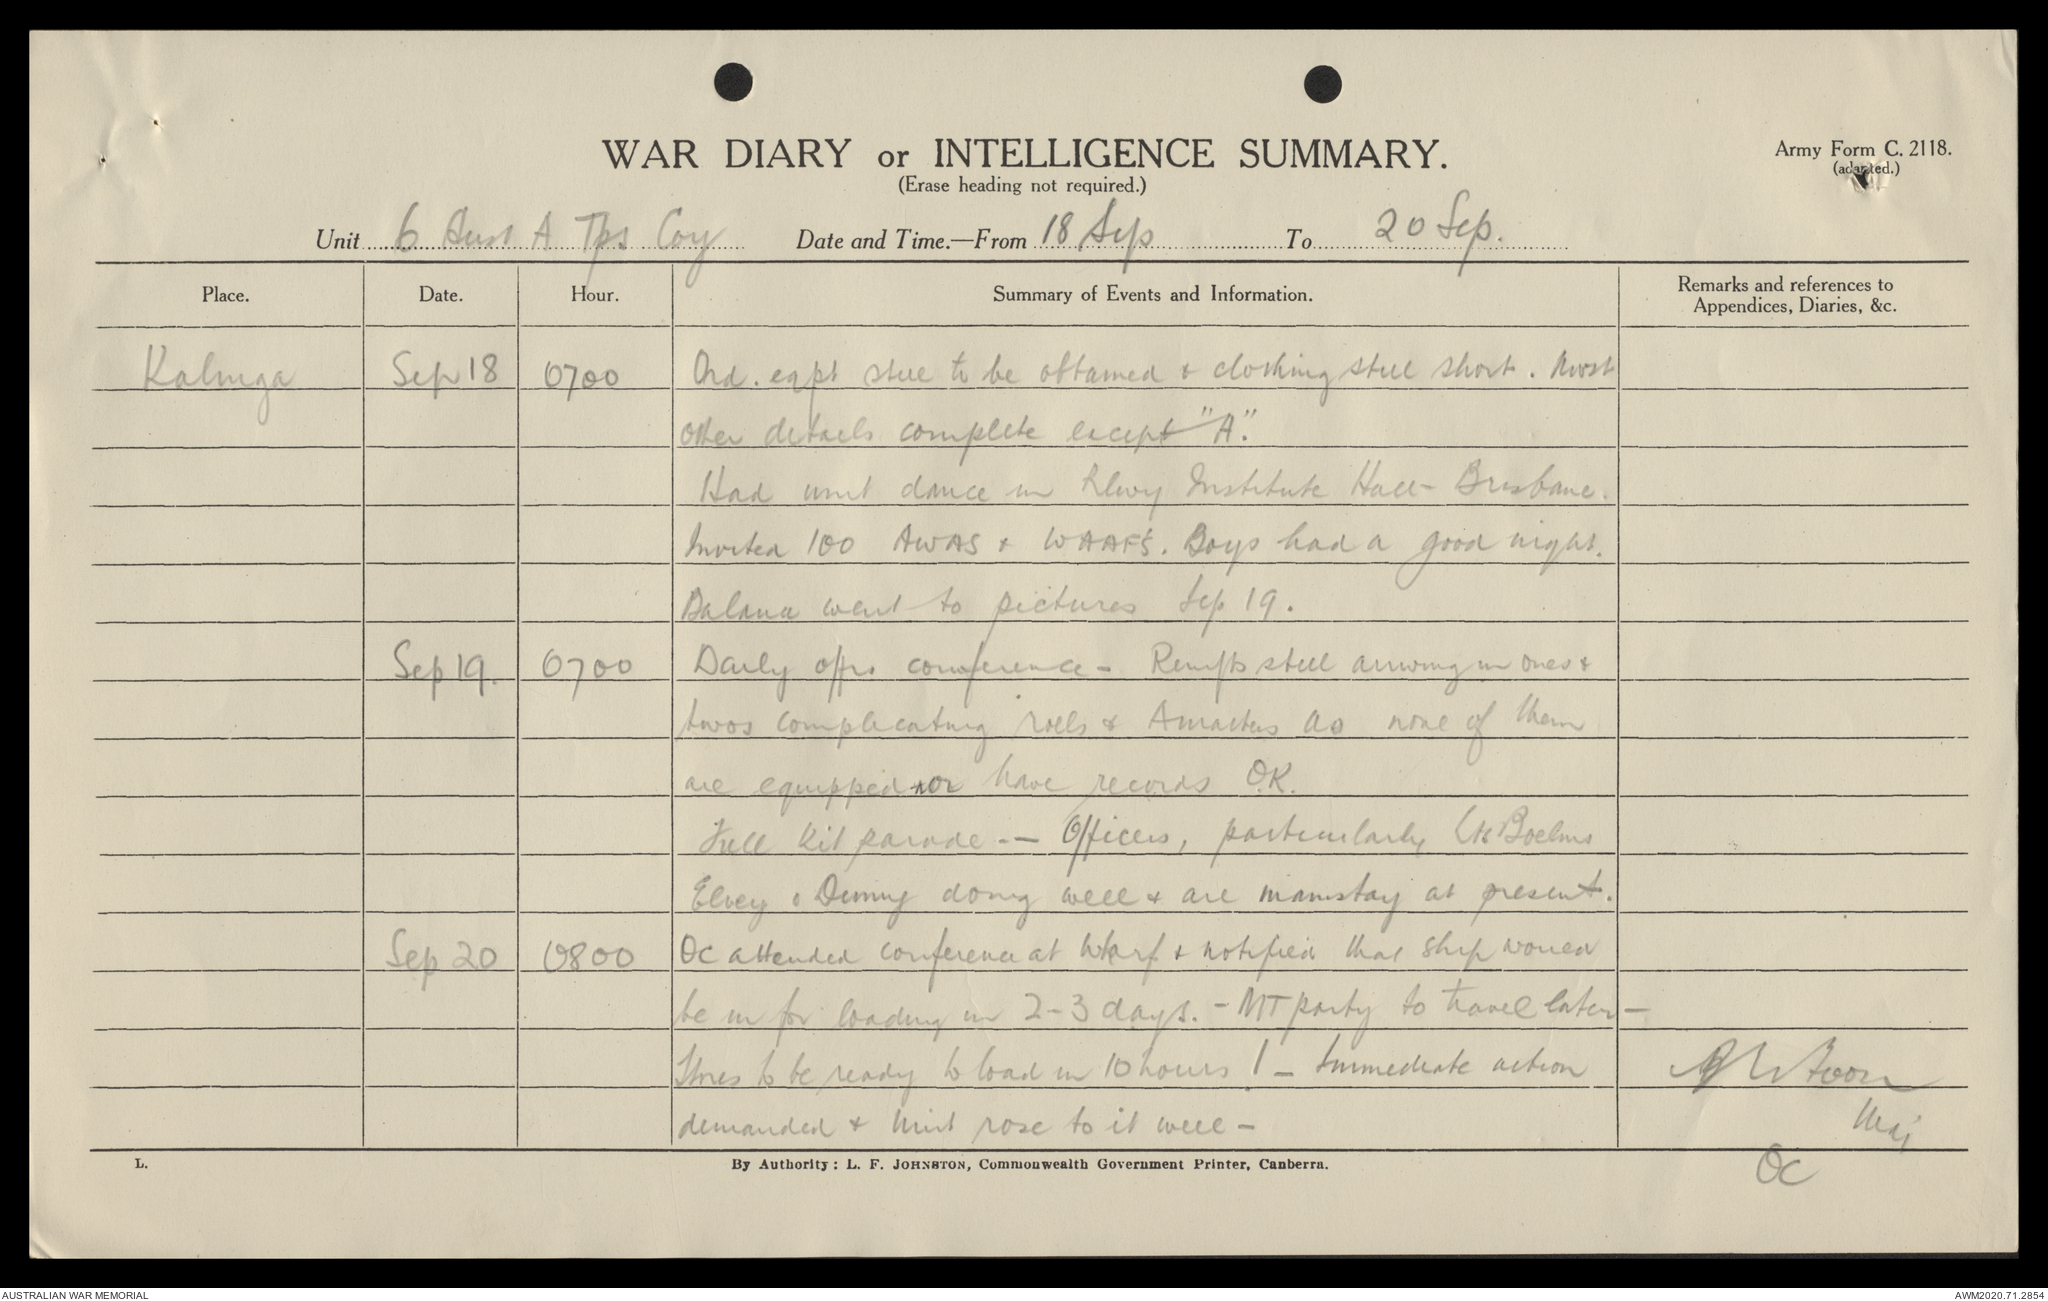 WAR DIARY or INTELLIGENCE SUMMARY.
(Erase heading not required.)
Army Form C. 2118.
(adapted.)
Unit 6 Aust A Tps Coy Date and Time.—From 18 Sep To 20 Sep.
Place. Date. Hour. Summary of Events and Information. Remarks and references to Appendices, Diaries, &c.
Kalinga Sep 18 0700 Ord. eqpt still to be obtained & clothing still short. Most
other details complete except "A".
Had unit dance in Rlwy Institute Hall - Brisbane.
Invited 100 AWAS & WAAFS. Boys had a good night.
Balance went to pictures Sep 19.
Sep 19. 0700 Daily offrs conference - Reinfts still arriving in ones &
twos complicating rolls & A matters as none of them
are equipped nor have records O.K.
Full kit parade. — Officers, particularly Lts Boelms
Elvey & Denny doing well & are mainstay at present.
Sep 20 0800 OC attended conference at Wharf & notified that ship would
be in for loading in 2-3 days. - MT party to travel later -
Stores to be ready to load in 10 hours ! - Immediate action
demanded & Unit rose to it well -
Maj
OC
L. By Authority: L. F. JOHNSTON, Commonwealth Government Printer, Canberra.
AUSTRALIAN WAR MEMORIAL AWM2020.71.2854